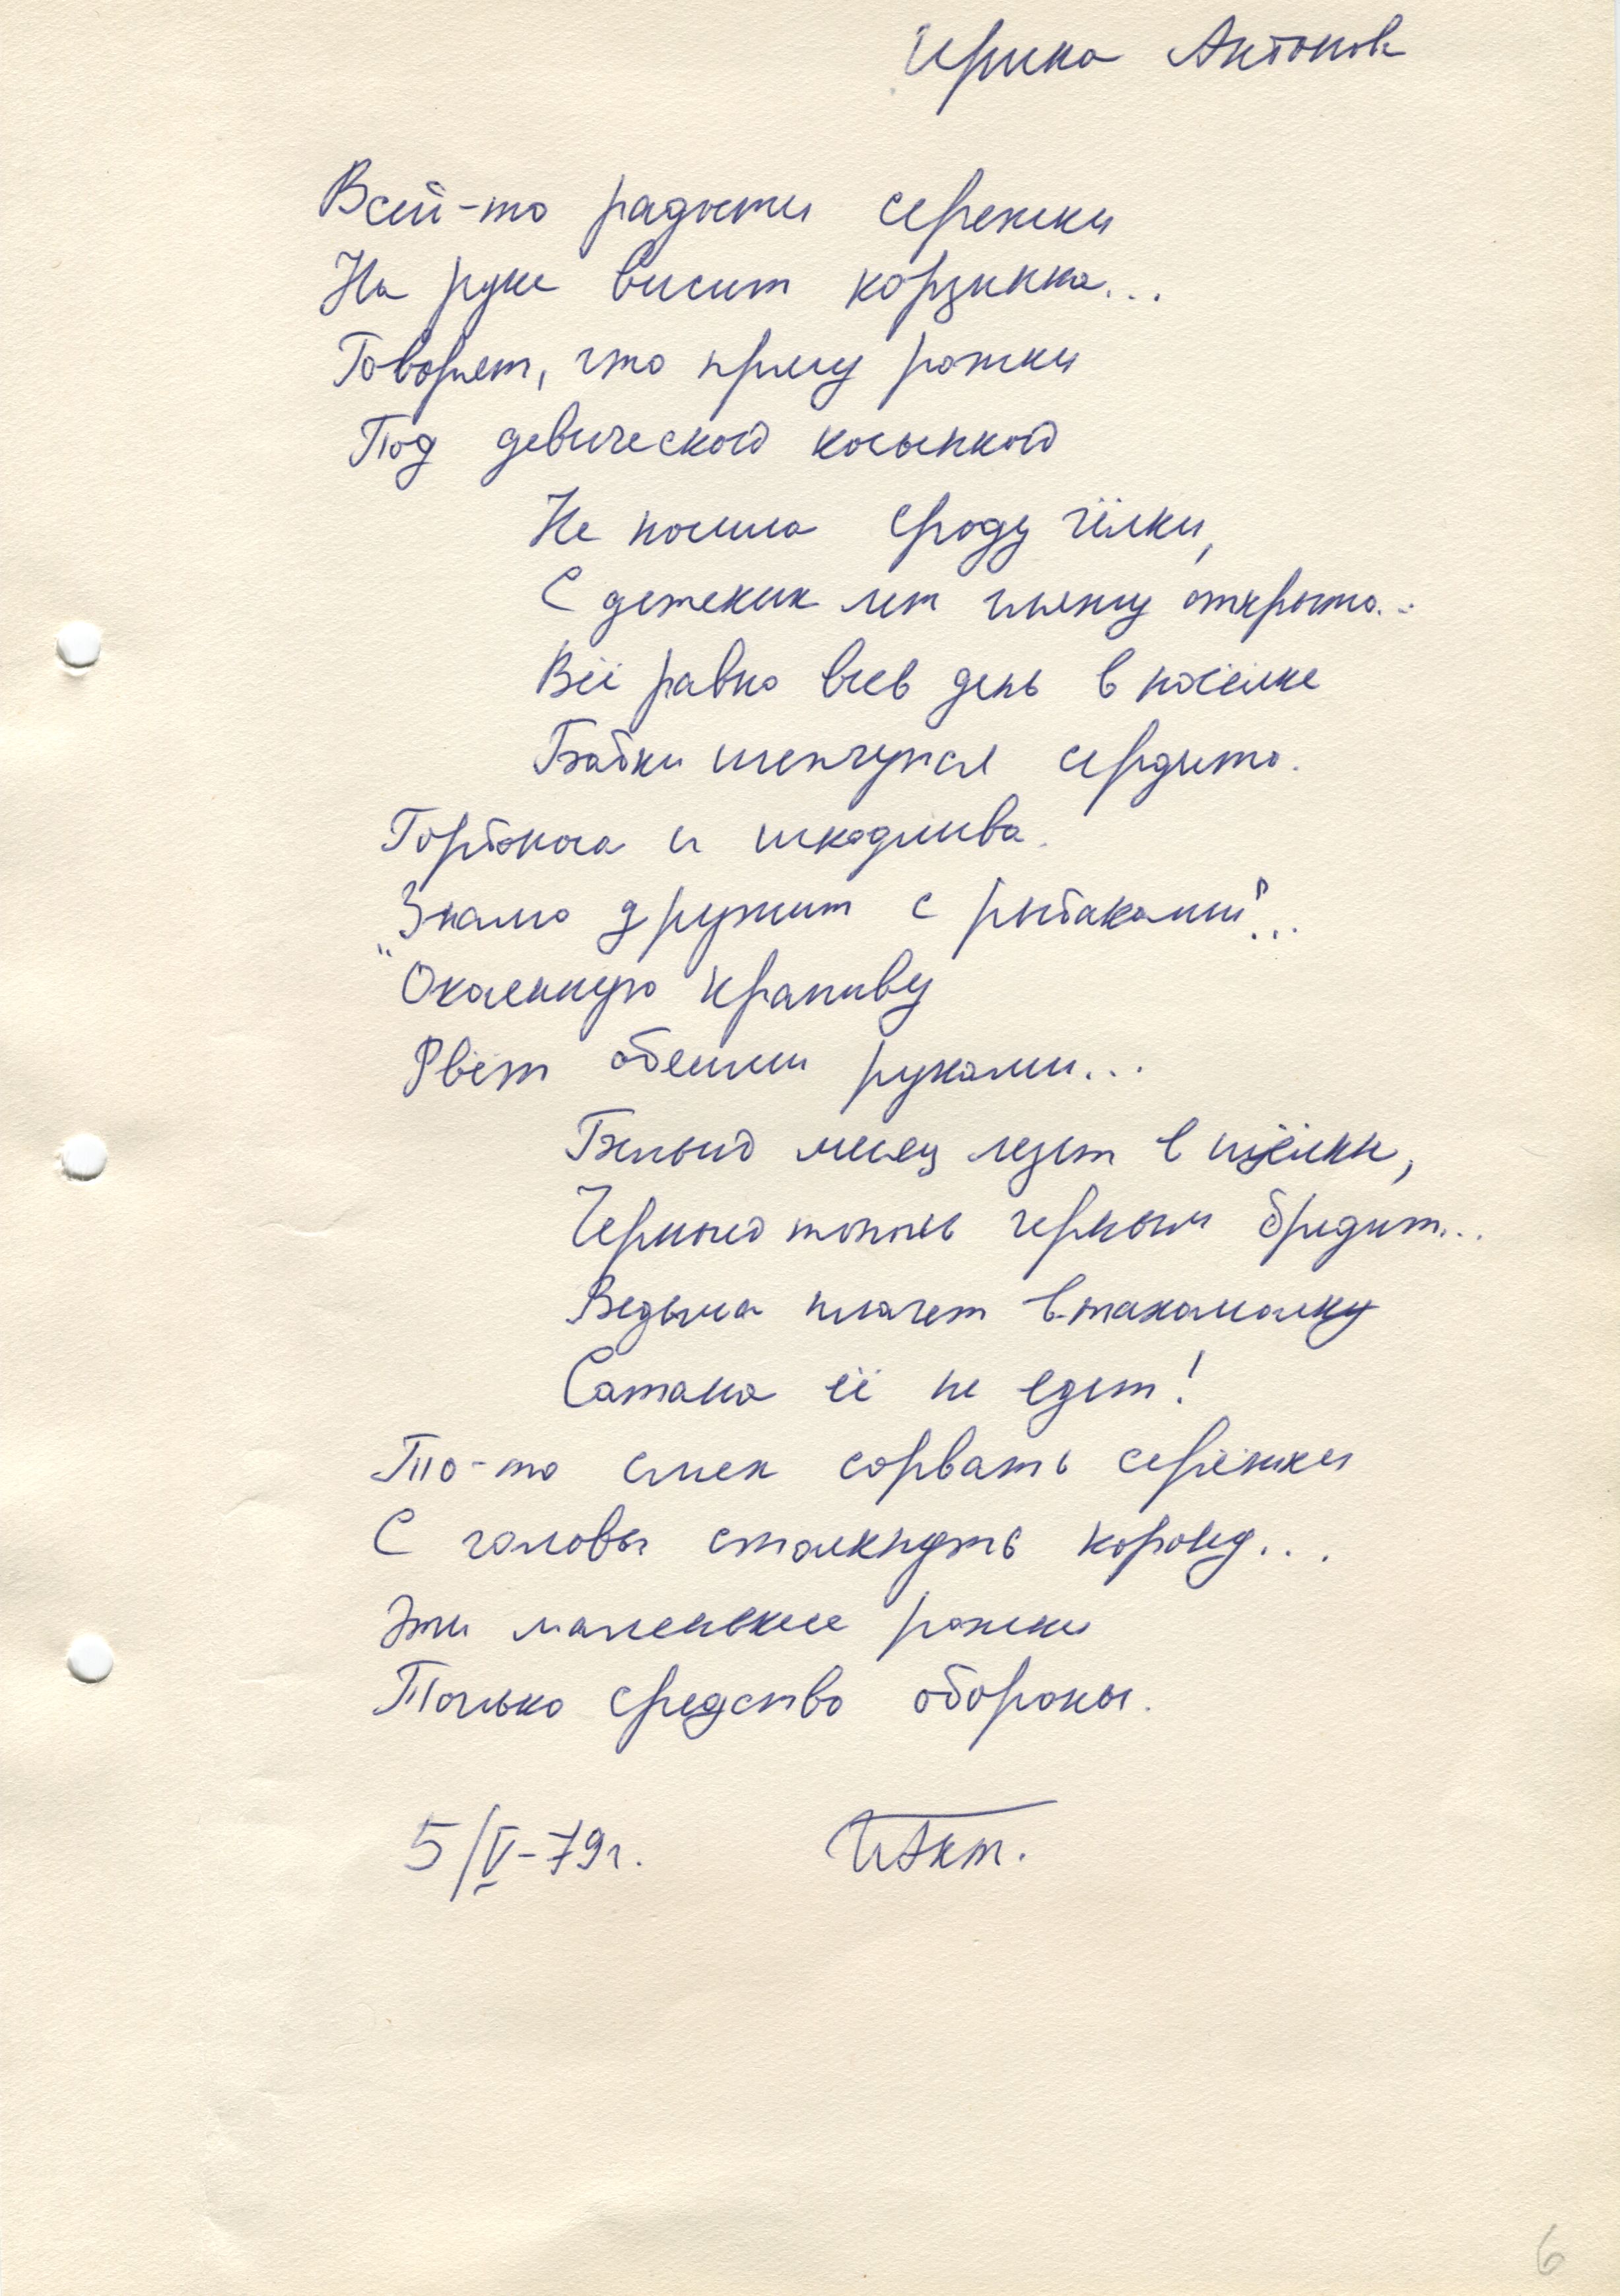 Ирина Антонов
Всей-то радости сережки
На руке висит корзинка...
Говорят, что прячу рожки
Под девической косынкой
Не носила сроду чёлки,
С детских лет гляжу открыто...
Всё равно весь день в посёлке
Бабки шепчутся сердито.
Горбоноса и шкодлива.
"Знамо дружит с рыбаками"...
Окаянную крапиву
Рвёт обеими руками...
Белый месяц лезет в щёлки,
Черный тополь черным бредит...
Ведьма плачет втихомолку
Сатана её не едет!
То-то смех сорвать серёжки
С головы столкнуть корону...
Эти маленькие рожки
Только средство обороны.
5/V-79г. ИАнт.
6